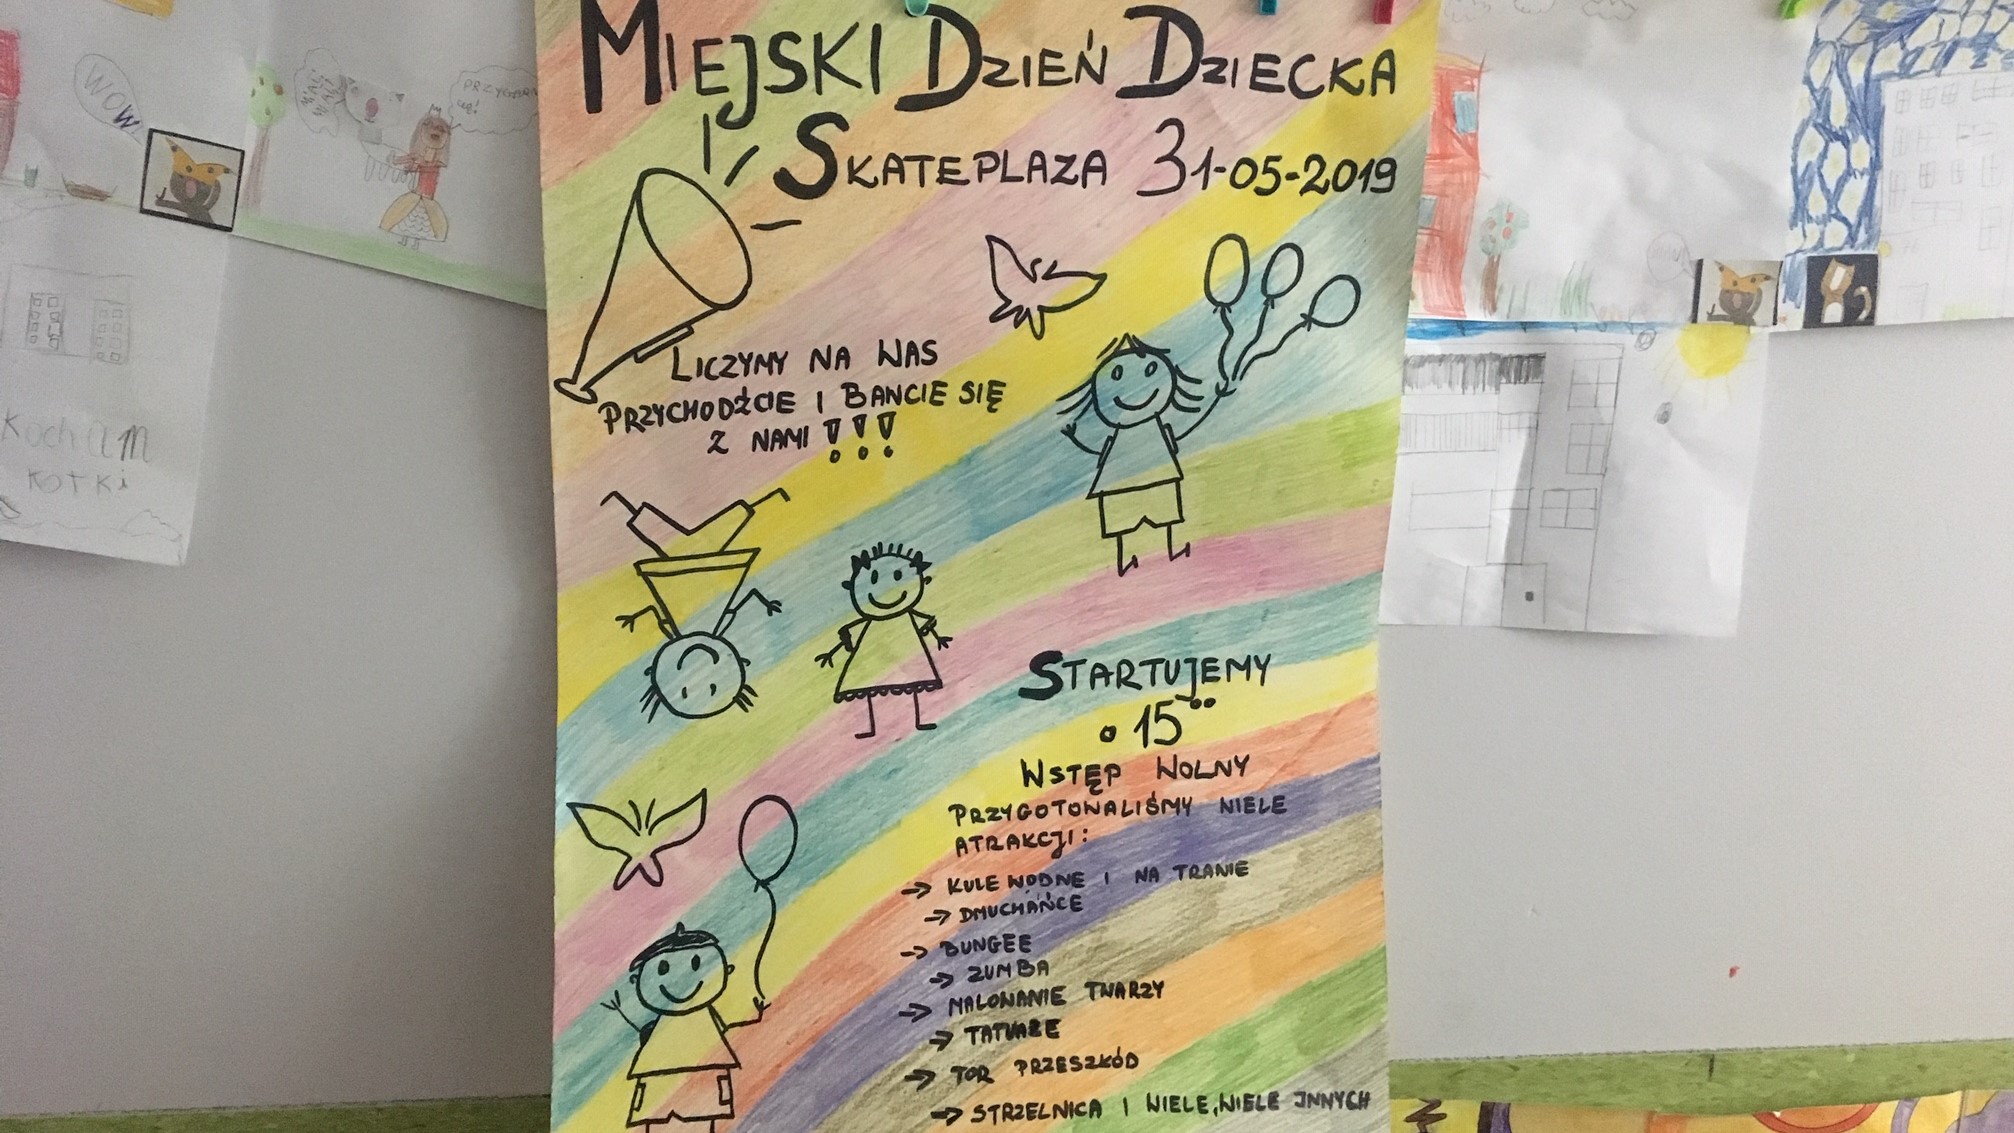 MIEJSKI DZIEŃ DZIECKA
SKATEPLAZA 31-05-2019
LICZYMY NA WAS
PRZYCHODŹCIE I BAWCIE SIĘ
Z NAMI !!!
STARTUJEMY
o 15⁰⁰
WSTĘP WOLNY
PRZYGOTOWALIŚMY WIELE
ATRAKCJI:
→ KULE WODNE I NA TRAWIE
→ DMUCHAŃCE
→ BUNGEE
→ ZUMBA
→ MALOWANIE TWARZY
→ TATUAŻE
→ TOR PRZESZKÓD
→ STRZELNICA I WIELE, WIELE INNYCH
WOW
Kocham
kotki